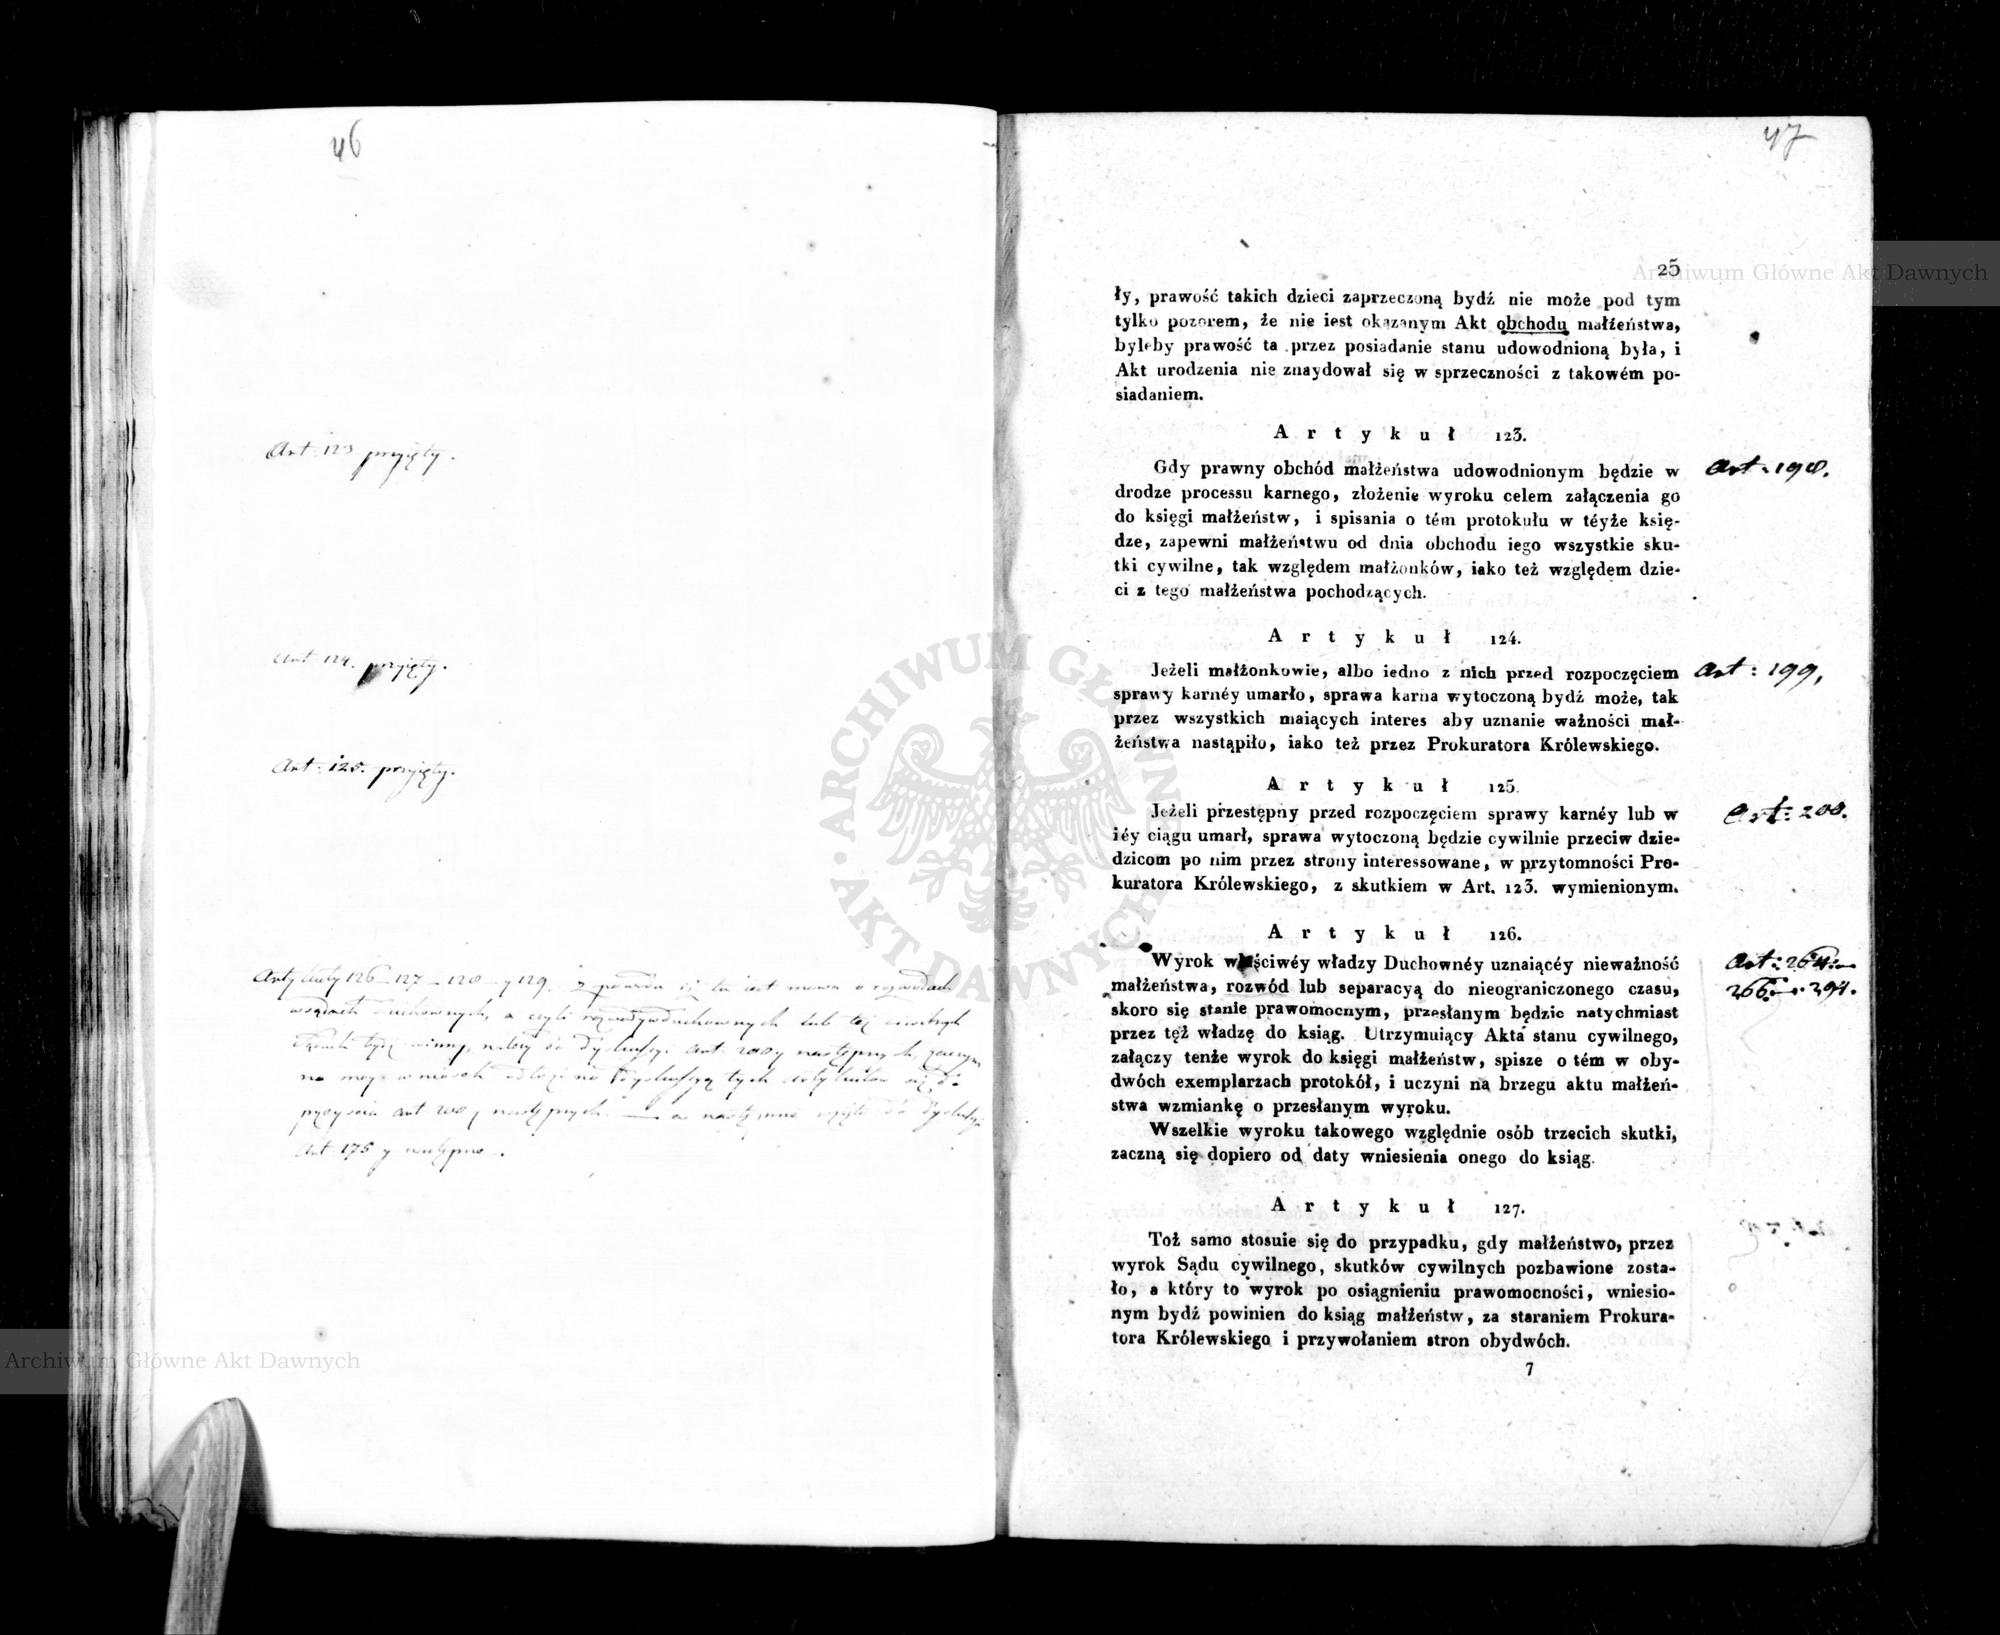 46
Art: 123 przyięty.
Art 124. przyięty.
Art: 125. przyięty.
Artykuły 126 – 127 – 128 – y 129. z powodu iż tu iest mowa o rozwodach
w sądach Duchownych, a czyli rozwody w duchownych lub też cywilnych
bydź winny, należy do dyskussyi Art. 200 y następnych,
na wniosek odłożono dyskussyą tych Artykułów aż do
przyyścia Art 200 y następnych. — a następnie do dyskussyi
Art 175 y następne.
47
25
ły, prawość takich dzieci zaprzeczoną bydź nie może pod tym
tylko pozorem, że nie iest okazanym Akt obchodu małżeństwa,
byleby prawość ta przez posiadanie stanu udowodnioną była, i
Akt urodzenia nie znaydował się w sprzeczności z takowém po-
siadaniem.
Artykuł 123.
Gdy prawny obchód małżeństwa udowodnionym będzie w
drodze processu karnego, złożenie wyroku celem załączenia go
do księgi małżeństw, i spisania o tém protokułu w téyże księ-
dze, zapewni małżeństwu od dnia obchodu iego wszystkie sku-
tki cywilne, tak względem małżonków, iako też względem dzie-
ci z tego małżeństwa pochodzących.
Art. 198.
Artykuł 124.
Jeżeli małżonkowie, albo iedno z nich przed rozpoczęciem
sprawy karnéy umarło, sprawa karna wytoczoną bydź może, tak
przez wszystkich maiących interes aby uznanie ważności mał-
żeństwa nastąpiło, iako też przez Prokuratora Królewskiego.
Art: 199.
Artykuł 125.
Jeżeli przestępny przed rozpoczęciem sprawy karnéy lub w
iéy ciągu umarł, sprawa wytoczoną będzie cywilnie przeciw dzie-
dzicom po nim przez strony interessowane, w przytomności Pro-
kuratora Królewskiego, z skutkiem w Art. 123. wymienionym.
Art: 200.
Artykuł 126.
Wyrok właściwéy władzy Duchownéy uznaiącéy nieważność
małżeństwa, rozwód lub separacyą do nieograniczonego czasu,
skoro się stanie prawomocnym, przesłanym będzie natychmiast
przez tęż władzę do ksiąg. Utrzymuiący Akta stanu cywilnego,
załączy tenże wyrok do księgi małżeństw, spisze o tém w oby-
dwóch exemplarzach protokół, i uczyni na brzegu aktu małżeń-
stwa wzmiankę o przesłanym wyroku.
Wszelkie wyroku takowego względnie osób trzecich skutki,
zaczną się dopiero od daty wniesienia onego do ksiąg.
Art: 264. –
266. – 294.
Artykuł 127.
Toż samo stosuie się do przypadku, gdy małżeństwo, przez
wyrok Sądu cywilnego, skutków cywilnych pozbawione zosta-
ło, a który to wyrok po osiągnieniu prawomocności, wniesio-
nym bydź powinien do ksiąg małżeństw, za staraniem Prokura-
tora Królewskiego i przywołaniem stron obydwóch.
7
Archiwum Główne Akt Dawnych
Archiwum Główne Akt Dawnych
ARCHIWUM GŁÓWNE AKT DAWNYCH